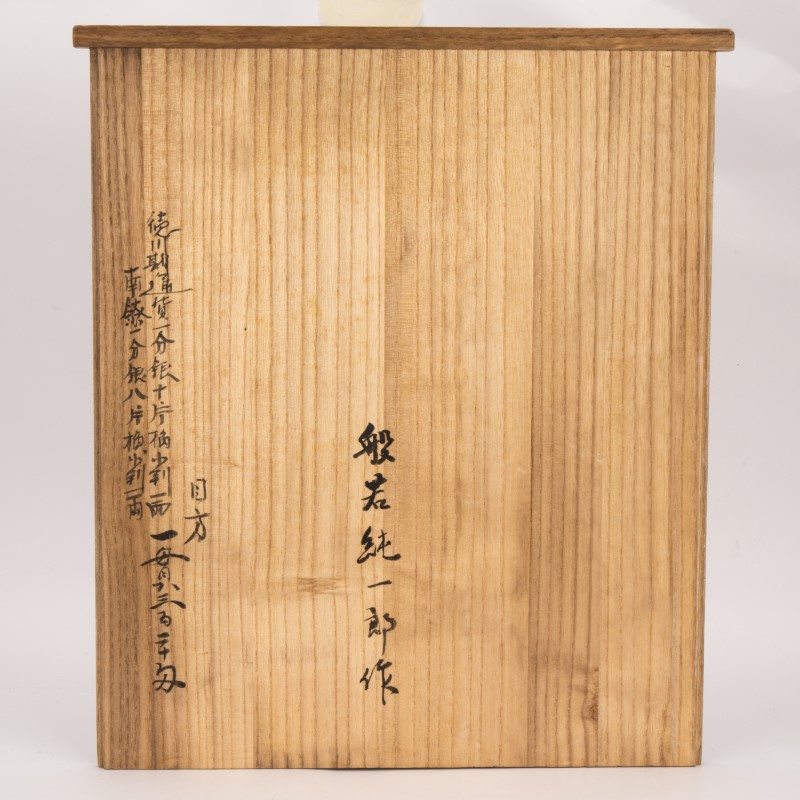 般若純一郎作
目方
一貫三百二十匁
徳川期通貨一分銀十片楕小判一面
南鐐一分銀八片楕小判一両